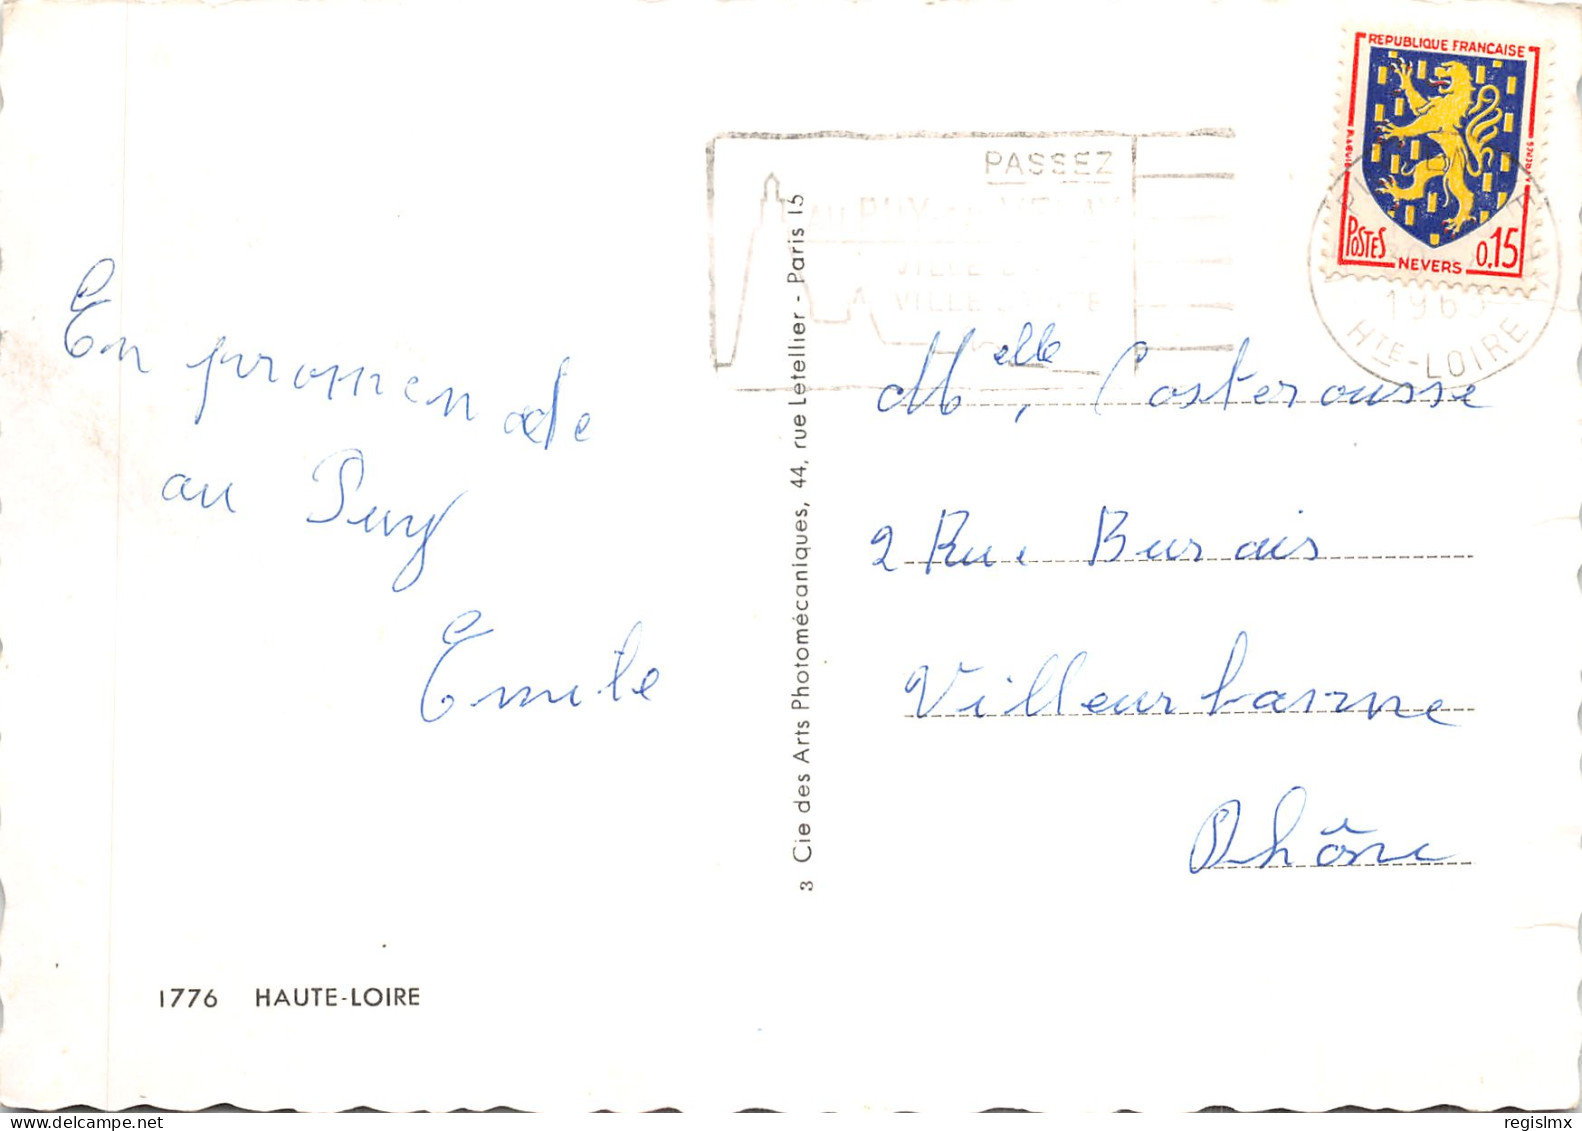 En promenade
au Puy
Emile
1776 HAUTE-LOIRE
3 Cie des Arts Photomécaniques, 44, rue Letellier - Paris 15
PASSEZ
AU PUY-en-VELAY
VILLE
A VILLE
REPUBLIQUE FRANCAISE
POSTES
NEVERS
0,15
196
HTE-LOIRE
Melle Costerousse
2 Rue Burais
Villeurbanne
Rhône
regislmx